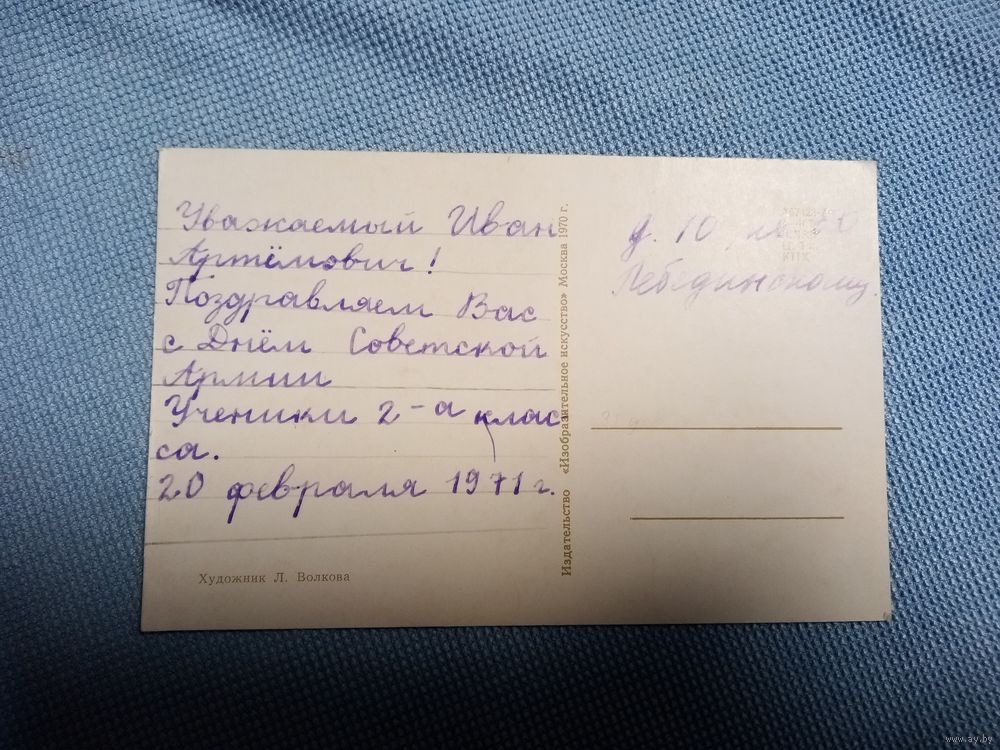 Уважаемый Иван
Артёмович!
Поздравляем Вас
с Днём Советской
Армии
Ученики 2-а клас
са.
20 февраля 1971 г.
Художник Л. Волкова
Издательство «Изобразительное искусство» Москва 1970 г.
д. 10
Лебединскому
www.ay.by